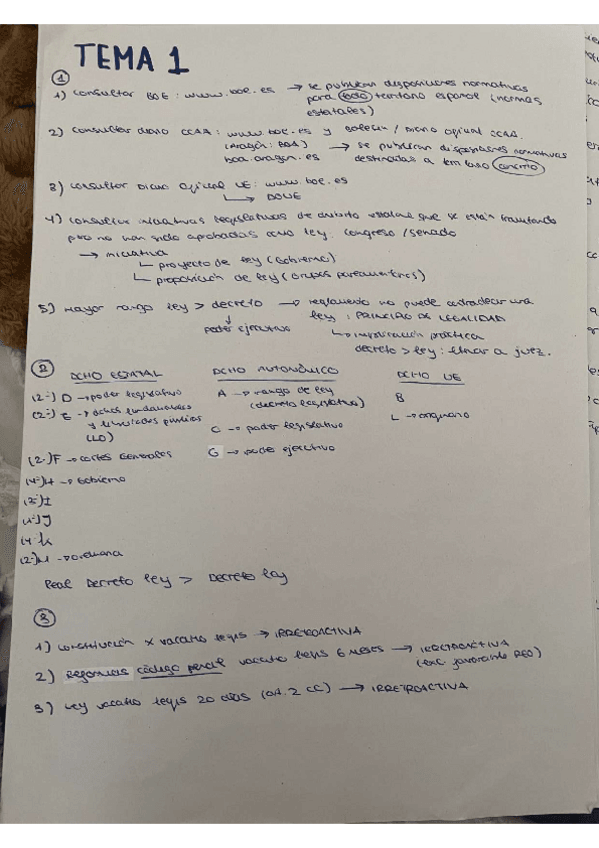 TEMA 1
①
1) consultar BOE: www.boe.es → se publican disposiciones normativas
para todo territorio español (normas
estatales)
2) consultar diario CCAA: www.boe.es y boletín / diario oficial CCAA
(Aragón: BOA) → se publican disposiciones normativas
boa.aragon.es destinadas a territorio concreto
3) consultar Diario Oficial UE: www.boe.es
↳ DOUE
4) consultar iniciativas legislativas de ámbito estatal que se están tramitando
pero no han sido aprobadas como ley. congreso / senado
→ iniciativa
↳ proyecto de ley (Gobierno)
↳ proposición de ley (Grupos parlamentarios)
5) Mayor rango ley > decreto → reglamento no puede contradecir una
↓ ley: PRINCIPIO DE LEGALIDAD
poder ejecutivo ↳ implicación práctica
decreto > ley: llamar a juez.
② DCHO ESTATAL DCHO AUTONÓMICO DCHO UE
(2º) D → poder legislativo A → rango de ley B
(2º) E → dchos fundamentales (decreto legislativo) L → originario
y libertades públicas C → poder legislativo
(LO)
(2º) F → cortes Generales G → poder ejecutivo
(4º) H → Gobierno
(2º) I
(4º) J
(4º) K
(2º) M → ordinaria
Real Decreto ley > Decreto ley
③
1) Constitución x vacatio legis → IRRETROACTIVA
2) Reformas código penal vacatio legis 6 MESES → IRRETROACTIVA
(exc. favorable REO)
3) Ley vacatio legis 20 días (art. 2 CC) → IRRETROACTIVA